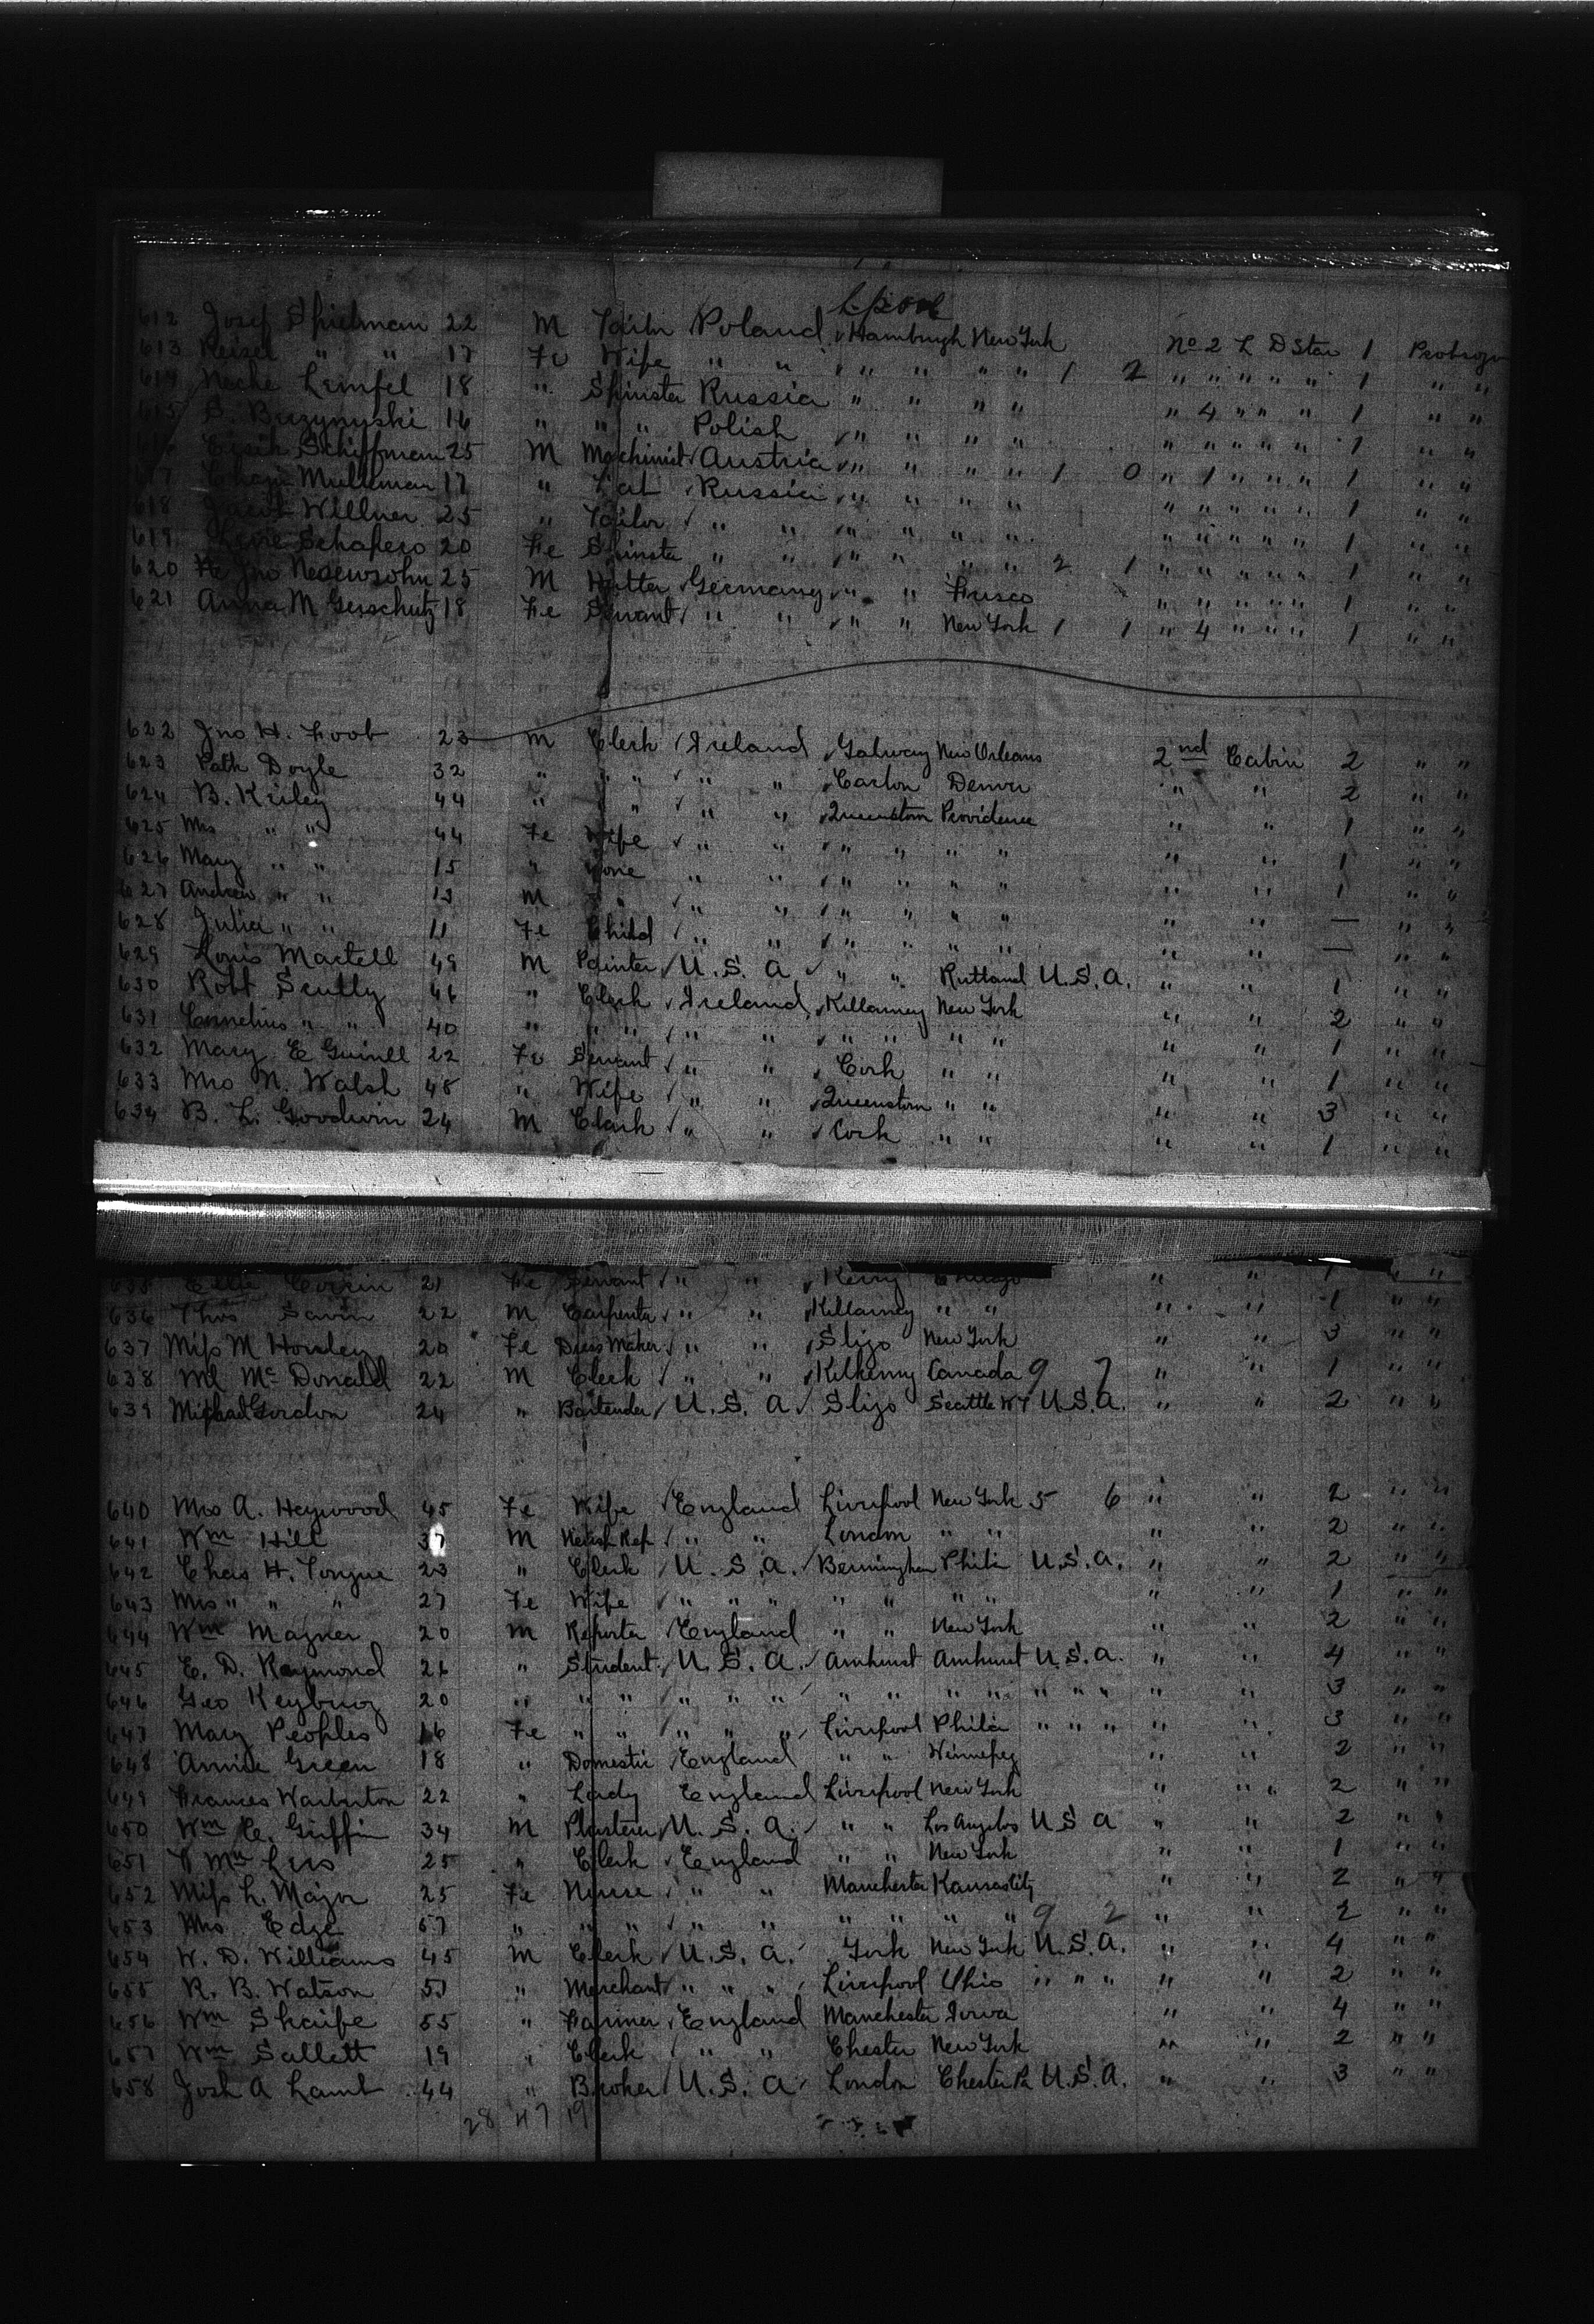 L-pool
612 Josef Shielman 22 M Tailor Poland Hamburgh New York No 2 L D Star 1
613 Reisel " " 17 Fe Wife " " " " " " 1 2 " " " " " 1 " "
614 Neche 18 " Spinster Russia " " " " " 4 " " " 1 " "
615 S. 16 " " " Polish " " " " " " " " " 1 " "
616 Schiffman 25 M Machinist Austria " " " " 1 0 " 1 " " " 1 " "
617 17 " Russia " " " " " " " " " 1 " "
618 Jacob Willner 25 " Tailor " " " " " " " " " " " 1 " "
619 Schapero 20 Fe Spinster " " " " " " 2 1 " " " " " 1 " "
620 25 M Hatter Germany " " Frisco " " " " " 1 " "
621 Anna M Gerschutz 18 Fe Servant " " " " New York 1 1 " 4 " " " 1 " "
622 Jno H. Foot 23 M Clerk Ireland Galway New Orleans 2nd Cabin 2 " "
623 Patk Doyle 32 " " " " " Denver " " 2 " "
624 B. Kriley 44 " " " " Queenstown Providence " " 1 " "
625 Mrs " " 44 Fe Wife " " " " " " " " 1 " "
626 Mary " " 15 " None " " " " " " " " 1 " "
627 Andrew " " 13 M " " " " " " " " " — " "
628 Julia " " 11 Fe Child " " " " " " " " — " "
629 Louis Martell 49 M Painter U.S.A. " " Rutland U.S.A. " " 1 " "
630 Robt Scully 46 " Clerk Ireland Killarney New York " " 2 " "
631 Cornelius " " 40 " " " " " " " " " " " 1 " "
632 Mary E Guinell 22 Fe Servant " " Cork " " " " 1 " "
633 Mrs N. Walsh 48 " Wife " " Queenstown " " " " 3 " "
634 B. L. Goodwin 24 M Clerk " " Cork " " " " 1 " "
635 Ellie 21 Fe Servant " " Kerry Chicago " " 1 " "
636 Thos Savin 22 M Carpenter " " Killarney " " " " 1 " "
637 Miss M Howley 20 Fe Dress Maker " " Sligo New York " " 3 " "
638 Ml McDonald 22 M Clerk " " Kilkenny Canada 9 7 " " 1 " "
639 Michael Gordon 24 " Bartender U.S.A. Sligo Seattle WT U.S.A. " " 2 " "
640 Mrs A. Heywood 45 Fe Wife England Liverpool New York 5 6 " " 2 " "
641 Wm Hill M " " London " " " " 2 " "
642 Chas H. Tongue 23 " Clerk U.S.A. Bermingham Phila U.S.A. " " 2 " "
643 Mrs " " " 27 Fe Wife " " " " " " " " " 1 " "
644 Wm Magner 20 M Reporter England " " New York " " 2 " "
645 E. D. Raymond 26 " Student U.S.A. Amhurst Amhurst U.S.A. " " 4 " "
646 Geo 20 " " " " " " " " " " " " " " " 3 " "
647 Mary Peoples 16 Fe " " " " " Liverpool Phila " " " " " 3 " "
648 Annie Green 18 " Domestic England " " Winnepeg " " 2 " "
649 Frances Warburton 22 " Lady England Liverpool New York " " 2 " "
650 Wm E. Griffin 34 M Plasterer U.S.A. " " Los Angelos U S A " " 2 " "
651 25 " Clerk England " " New York " " 1 " "
652 Miss L. Major 25 Fe Nurse " " Manchester Kansas City " " 2 " "
653 Mrs Edge 57 " " " " " " " " " 9 2 " " 2 " "
654 W. D. Williams 45 M Clerk U.S.A. York New York U.S.A. " " 4 " "
655 R. B. Watson 57 " Merchant " " " Liverpool Ohio " " " " " 2 " "
656 Wm Skaife 55 " Farmer England Manchester Iowa " " 4 " "
657 Wm Sallett 19 " Clerk " " Chester New York " " 2 " "
658 Josh A Lamb 44 " Broker U.S.A. London Chester Pa U.S.A. " " 3 " "
28 47 19